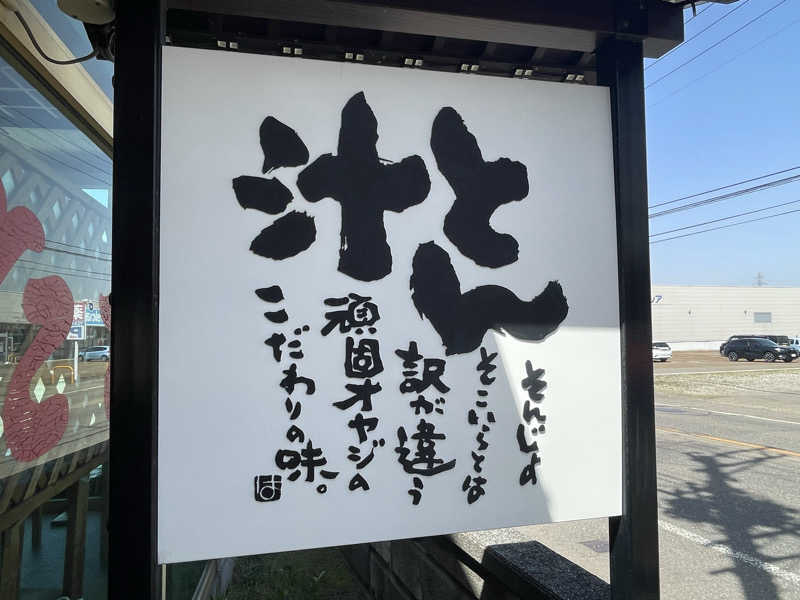 とん汁
そんじょ
そこいらとは
訳が違う
頑固オヤジの
こだわりの味。